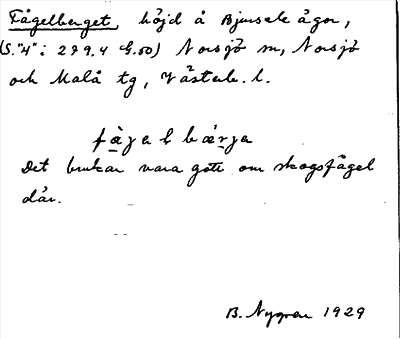 Fågelberget, höjd å Bjursele ägor,
(S."4": 279.4 G.50) Norsjö sn, Norsjö
och Malå tg, Västerb. l.
Det brukar vara gott om skogsfågel
där.
B. Nygren 1929